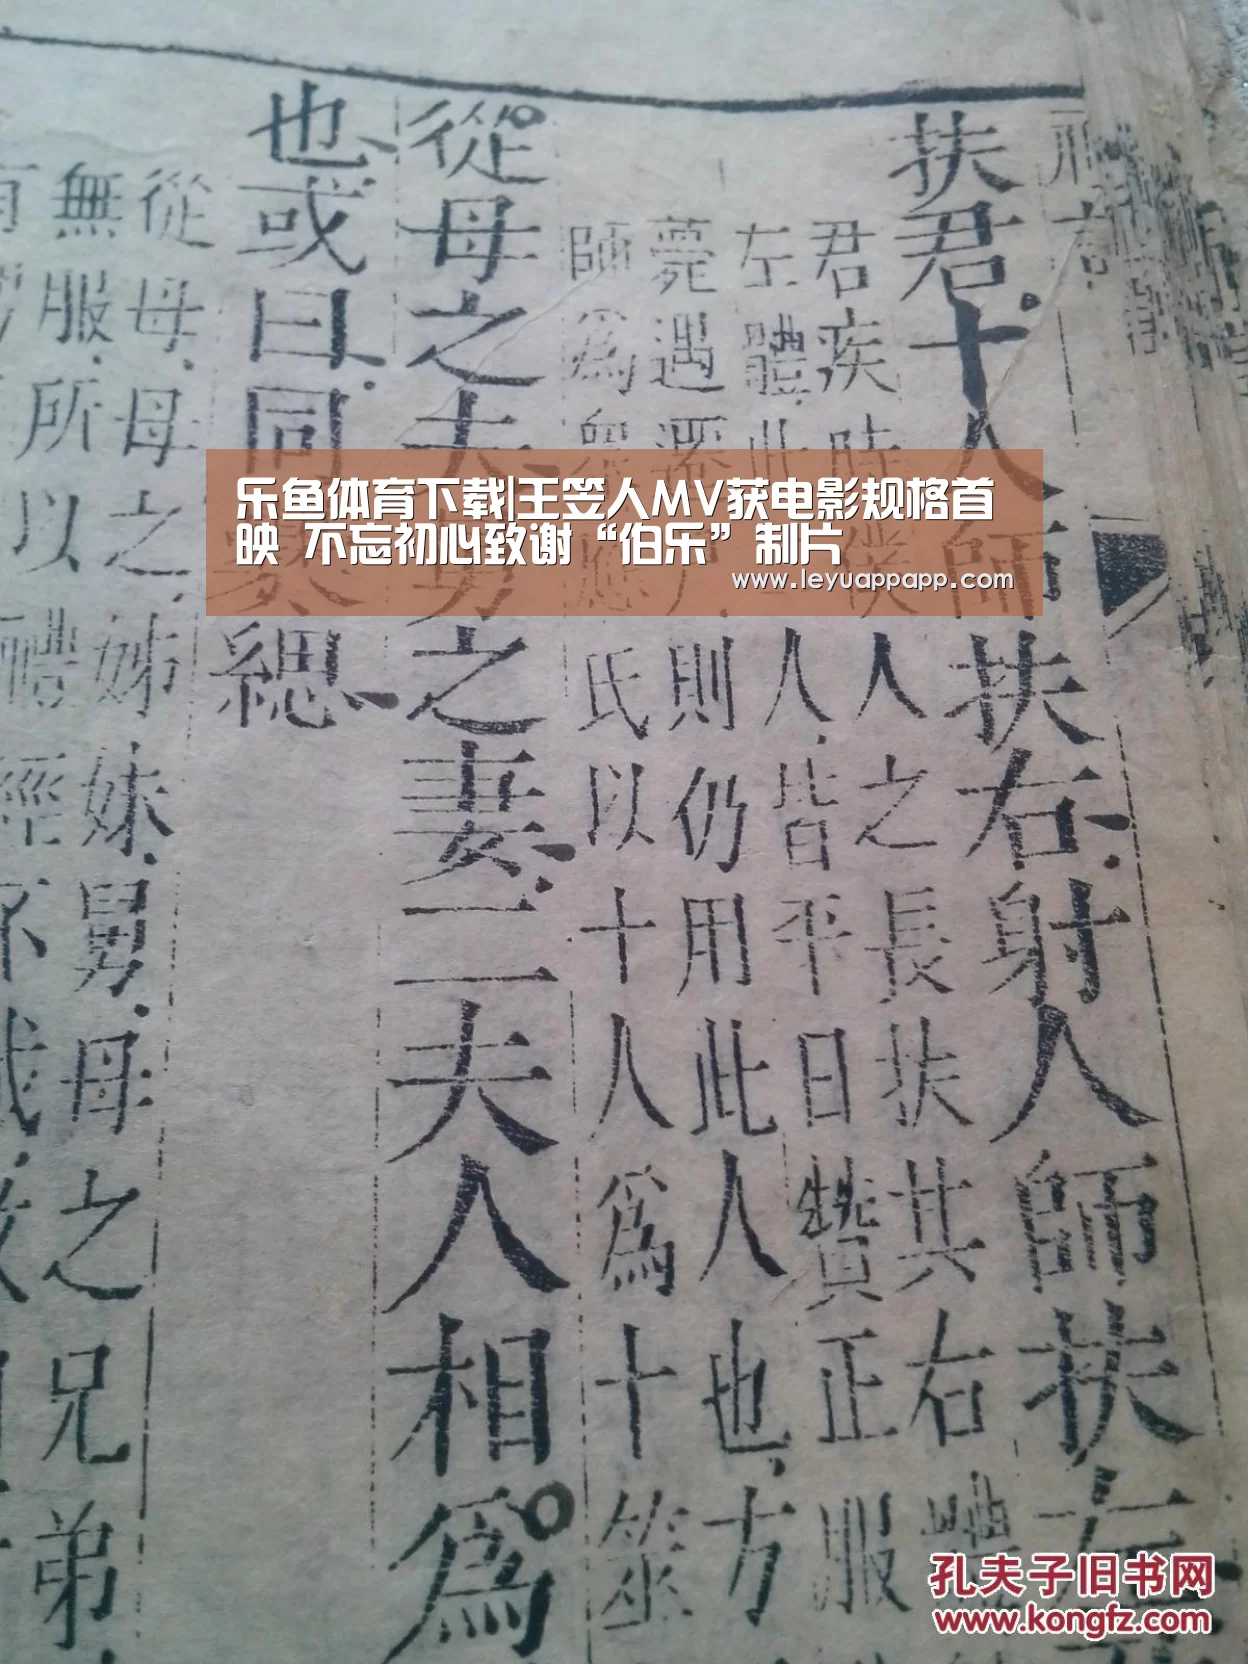 扶君十人師扶右射人師扶左
君疾時僕人之長扶共右體
左體此人皆平日贊正服
薨遇惡則仍用此人也方
師為衆應氏以十人為十筮
從母之夫舅之妻二夫人相為
也或曰同爨緦
從母母之姊妹舅母之兄弟
無服所以禮經不載
乐鱼体育下载|王笠人MV获电影规格首
映 不忘初心致谢“伯乐”制片
www.leyuappapp.com
孔夫子旧书网
www.kongfz.com